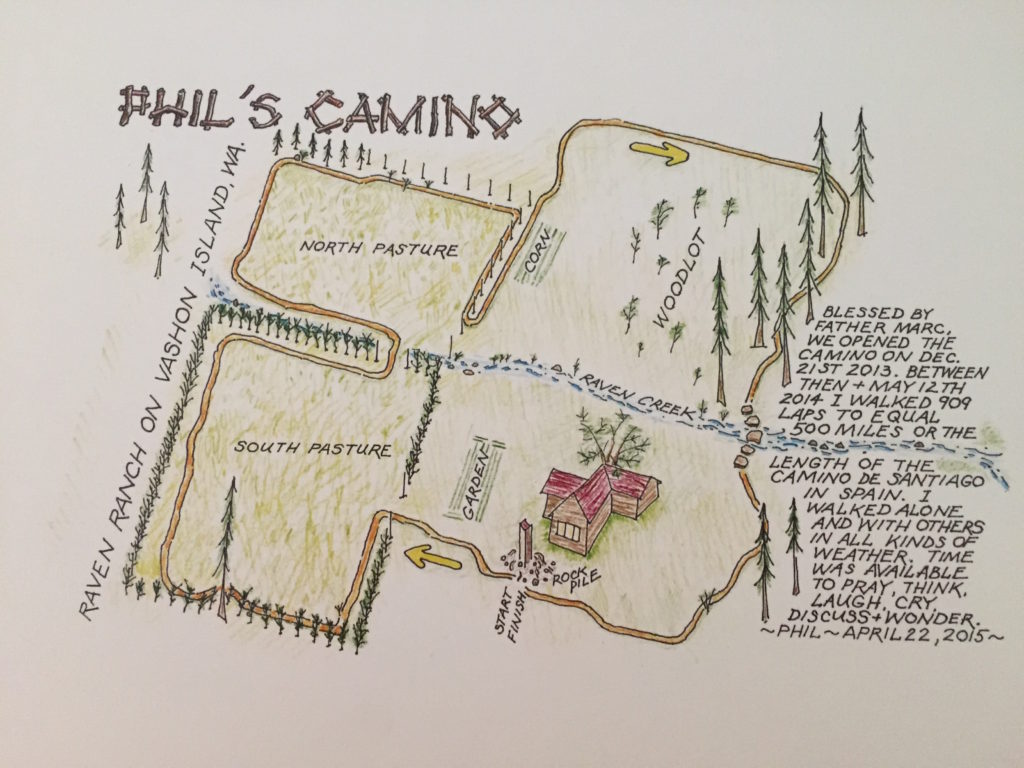 PHIL'S CAMINO
RAVEN RANCH ON VASHON ISLAND, WA.
NORTH PASTURE
CORN
WOODLOT
RAVEN CREEK
SOUTH PASTURE
GARDEN
ROCK
PILE
START
FINISH
BLESSED BY
FATHER MARC,
WE OPENED THE
CAMINO ON DEC.
21ST 2013. BETWEEN
THEN + MAY 12TH
2014 I WALKED 909
LAPS TO EQUAL
500 MILES OR THE
LENGTH OF THE
CAMINO DE SANTIAGO
IN SPAIN. I
WALKED ALONE
AND WITH OTHERS
IN ALL KINDS OF
WEATHER. TIME
WAS AVAILABLE
TO PRAY, THINK,
LAUGH, CRY,
DISCUSS + WONDER.
~PHIL~APRIL 22, 2015~